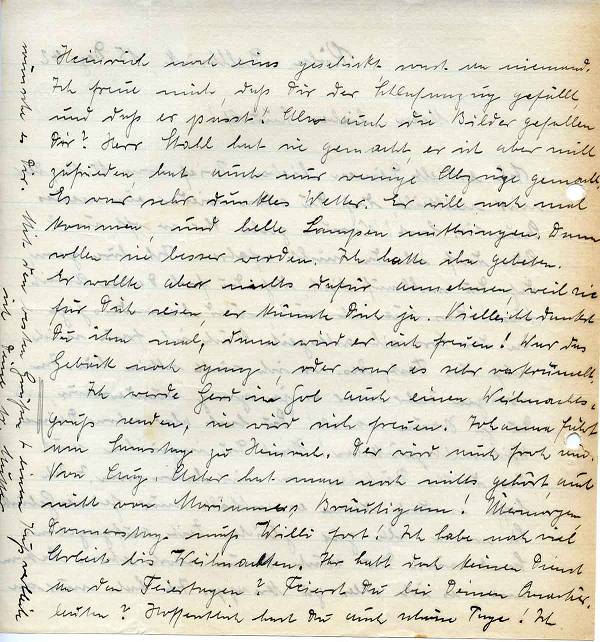 Heinrich noch eins geschickt sonst an niemand.
Ich freue mich, daß Dir der Schlafanzug gefällt,
und daß er passt! Ob auch die Bilder gefallen
Dir? Herr Stoll hat sie gemacht, er ist aber nicht
zufrieden hat auch nur wenige Abzüge gemacht,
Es war sehr dunkles Wetter. Er will noch mal
kommen, und helle Lampen mitbringen. Dann
sollen sie besser werden. Ich hatte ihn gebeten.
Er wollte aber nichts dafür annehmen, weil sie
für Dich seien, er kännte Dich ja. Vielleicht dankst
Du ihm mal, dann wird er sich freuen! War das
Gebäck noch ganz, oder war es sehr verkrümelt.
Ich werde Gerd in auch einen Weihnachts-
gruß senden, sie wird sich freuen. Johanna fährt
am Samstag zu Heinrich. Der wird auch froh sein.
Von hat man noch nichts gehört, auch
nicht von Bräutigam! Übermorgen,
Donnerstag muß Willi fort! Ich habe noch viel
Arbeit bis Weihnachten. Ihr habt doch keinen Dienst
an den Feiertagen? Feierst Du bei Deinen Quartier-
leuten? Hoffentlich hast Du auch schöne Tage! Ich
wünsche es Dir. Mit den besten Grüßen + einem Kuß verbleibe
ich Deine Mutter